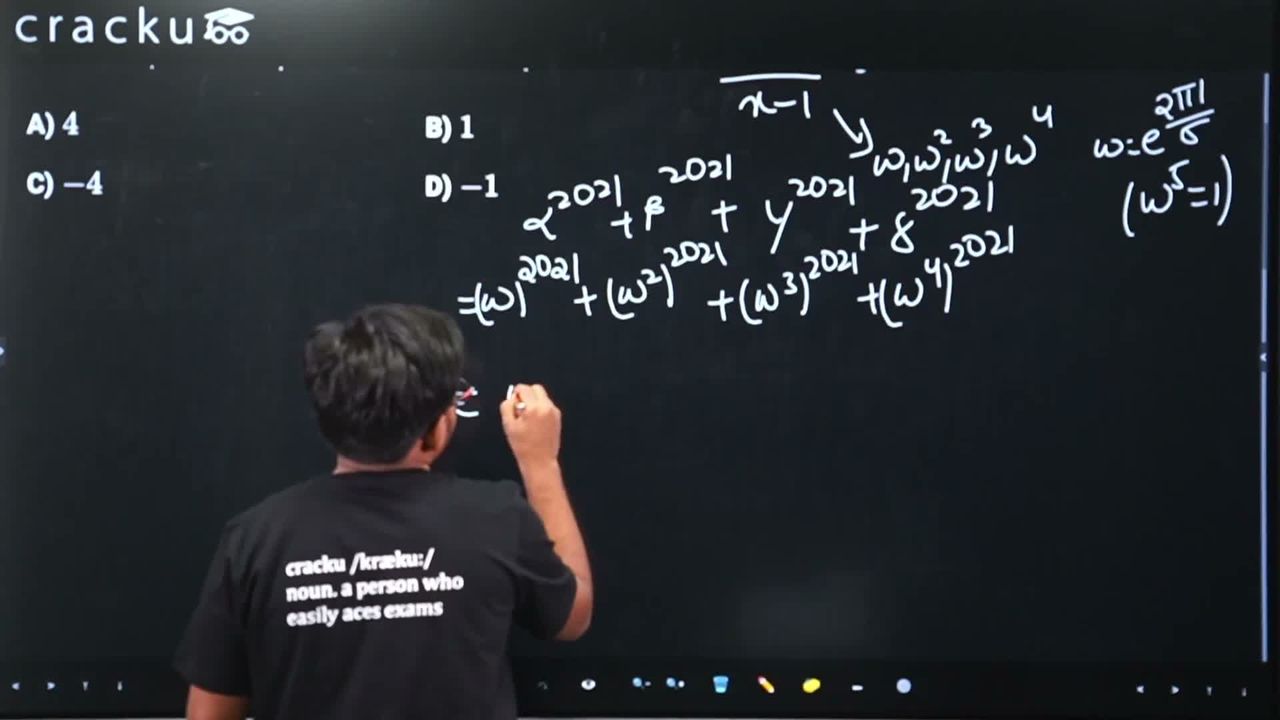 cracku
A) 4
B) 1
C) −4
D) −1
x−1
ω, ω², ω³, ω⁴
ω=e^(2πi/5)
(ω⁵=1)
α²⁰²¹ + β²⁰²¹ + γ²⁰²¹ + δ²⁰²¹
=(ω)²⁰²¹ + (ω²)²⁰²¹ + (ω³)²⁰²¹ + (ω⁴)²⁰²¹
=
cracku /kræku:/
noun. a person who
easily aces exams